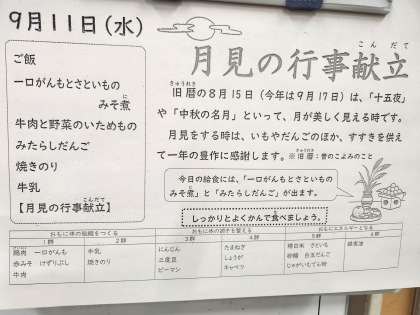 9月11日(水)
月見の行事献立
こん だて
ご飯
一口がんもとさといもの
みそ煮
に
牛肉と野菜のいためもの
みたらしだんご
焼きのり
牛乳
【月見の行事献立】
こんだて
きゅうれき
旧暦の8月15日(今年は9月17日)は、「十五夜」
や「中秋の名月」といって、月が美しく見える時です。
月見をする時は、いもやだんごのほか、すすきを供え
て一年の豊作に感謝します。※旧暦:昔のこよみのこと
きゅうれき
今日の給食には、「一口がんもとさといもの
みそ煮」と「みたらしだんご」が出ます。
しっかりとよくかんで食べましょう。
おもに体の組織をつくる おもに体の調子を整える おもにエネルギーとなる
1群 2群 3群 4群 5群 6群
鶏肉 一口がんも 牛乳 にんじん たまねぎ 精白米 さといも
赤みそ けずりぶし 焼きのり 三度豆 しょうが 砂糖 白玉だんご
牛肉 ピーマン キャベツ じゃがいもでん粉